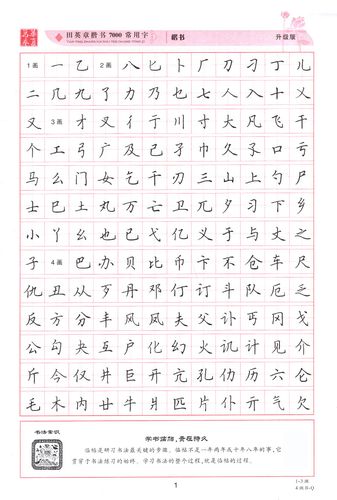 华夏万卷
田英章楷书 7000 常用字
TIAN YING ZHANG KAI SHU 7000 CHANG YONG ZI
楷书
升级版
1画 一 乙 2画 八 匕 卜 厂 刀 刁 丁 儿
二 几 九 了 力 乃 七 人 入 十 又
叉 3画 才 叉 彳 亍 川 寸 大 凡 飞 干
个 工 弓 广 及 己 孑 巾 久 孓 口 亏
马 么 门 女 乞 千 刃 三 山 上 勺 尸
士 巳 土 丸 万 亡 卫 兀 夕 习 下 乡
小 丫 幺 也 已 弋 亿 义 于 与 丈 之
子 4画 巴 办 贝 比 币 卞 不 仓 车 尺
仇 丑 从 歹 丹 邓 仃 订 斗 队 厄 乏
反 方 分 丰 风 凤 夫 父 讣 丐 冈 戈
公 勾 夬 互 户 化 幻 火 讥 计 见 介
斤 今 仅 井 巨 开 亢 孔 仂 历 六 仑
毛 木 内 廿 牛 爿 匹 片 仆 亓 气 欠
书法常识
学书临帖,贵在持久
临帖是研习书法最关键的步骤。临帖不是一年两年或十年八年的事,它
贯穿于书法练习的始终。学习书法的整个过程,就是临帖的过程。
1
1~3画
4画B~Q